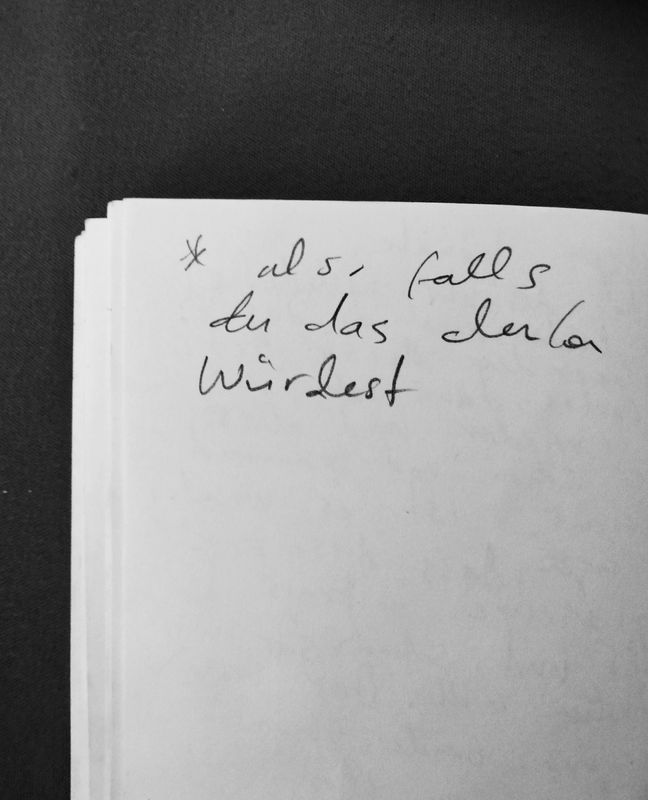 * als, falls
du das denken
würdest